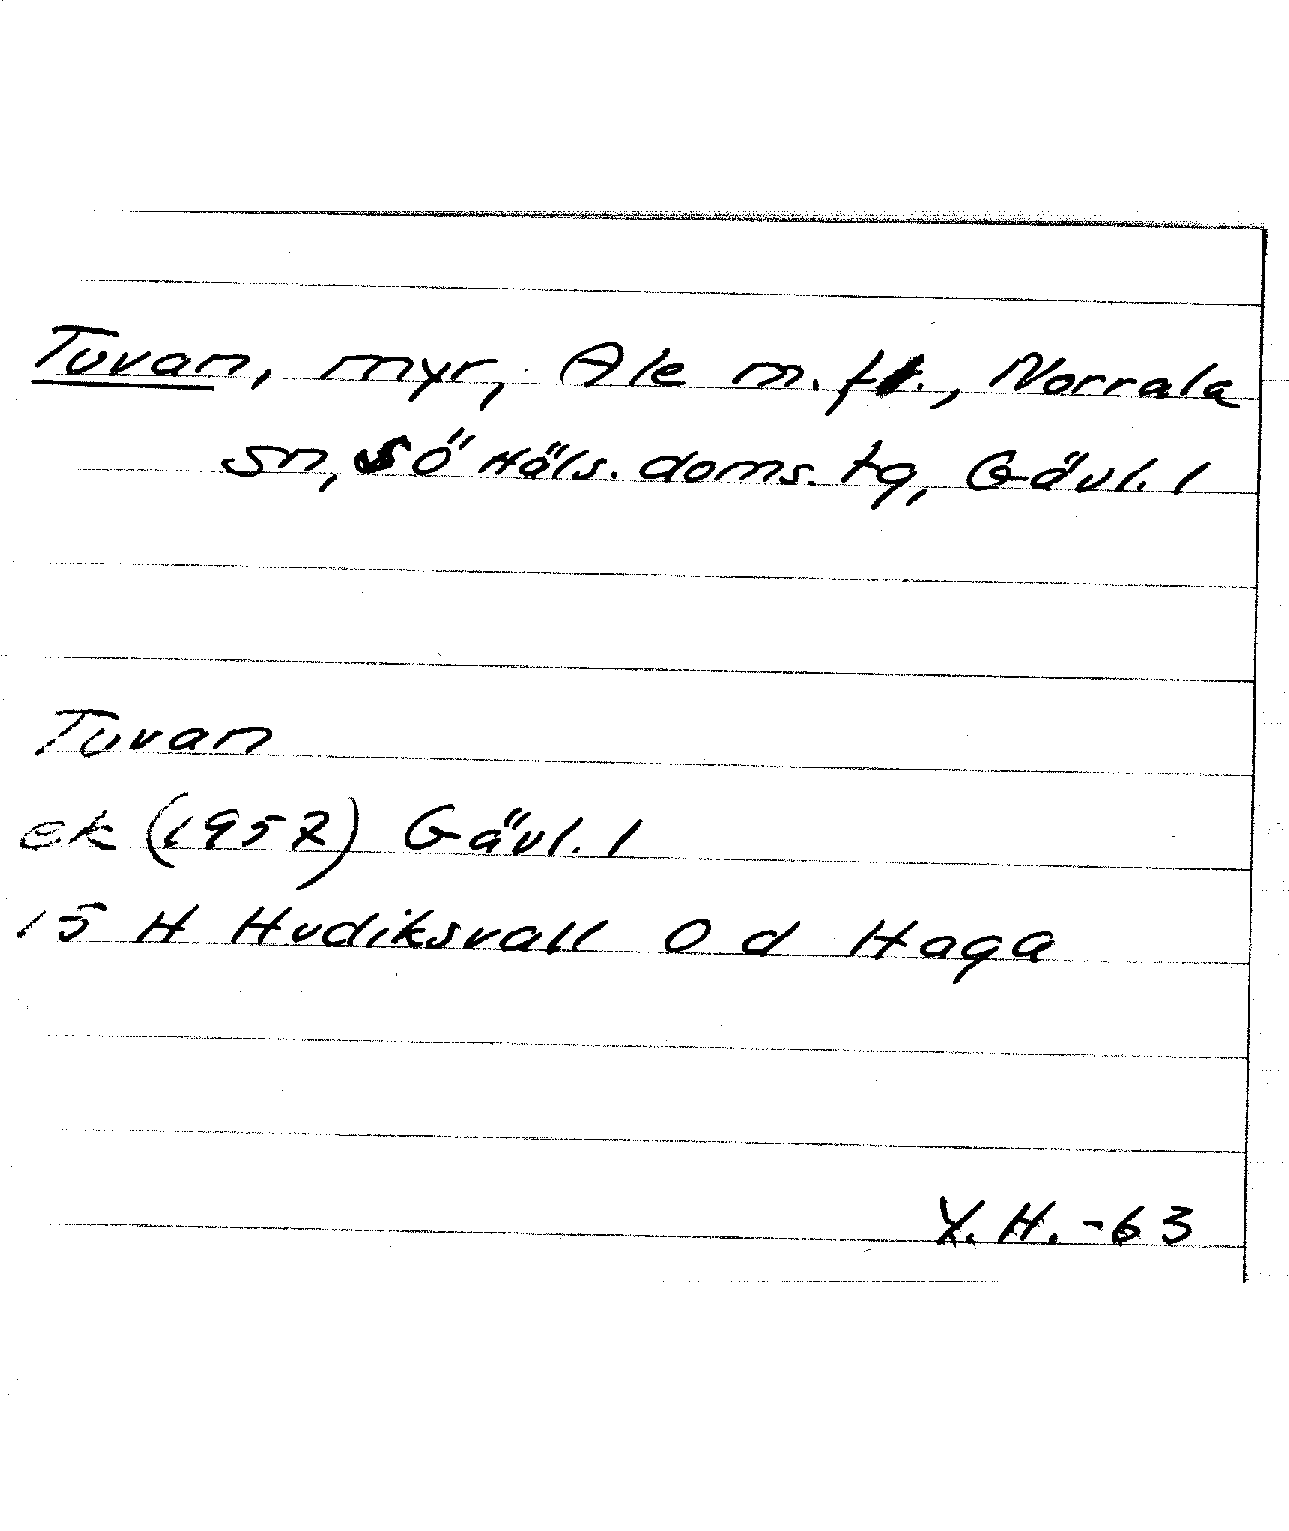 Tuvan, myr, Ale m. fl., Norrala
sn, sö Häls. doms. tg, Gävl. l
Tuvan
ek (1957) Gävl. l
15 H Hudiksvall O d Haga
Y. H. -63